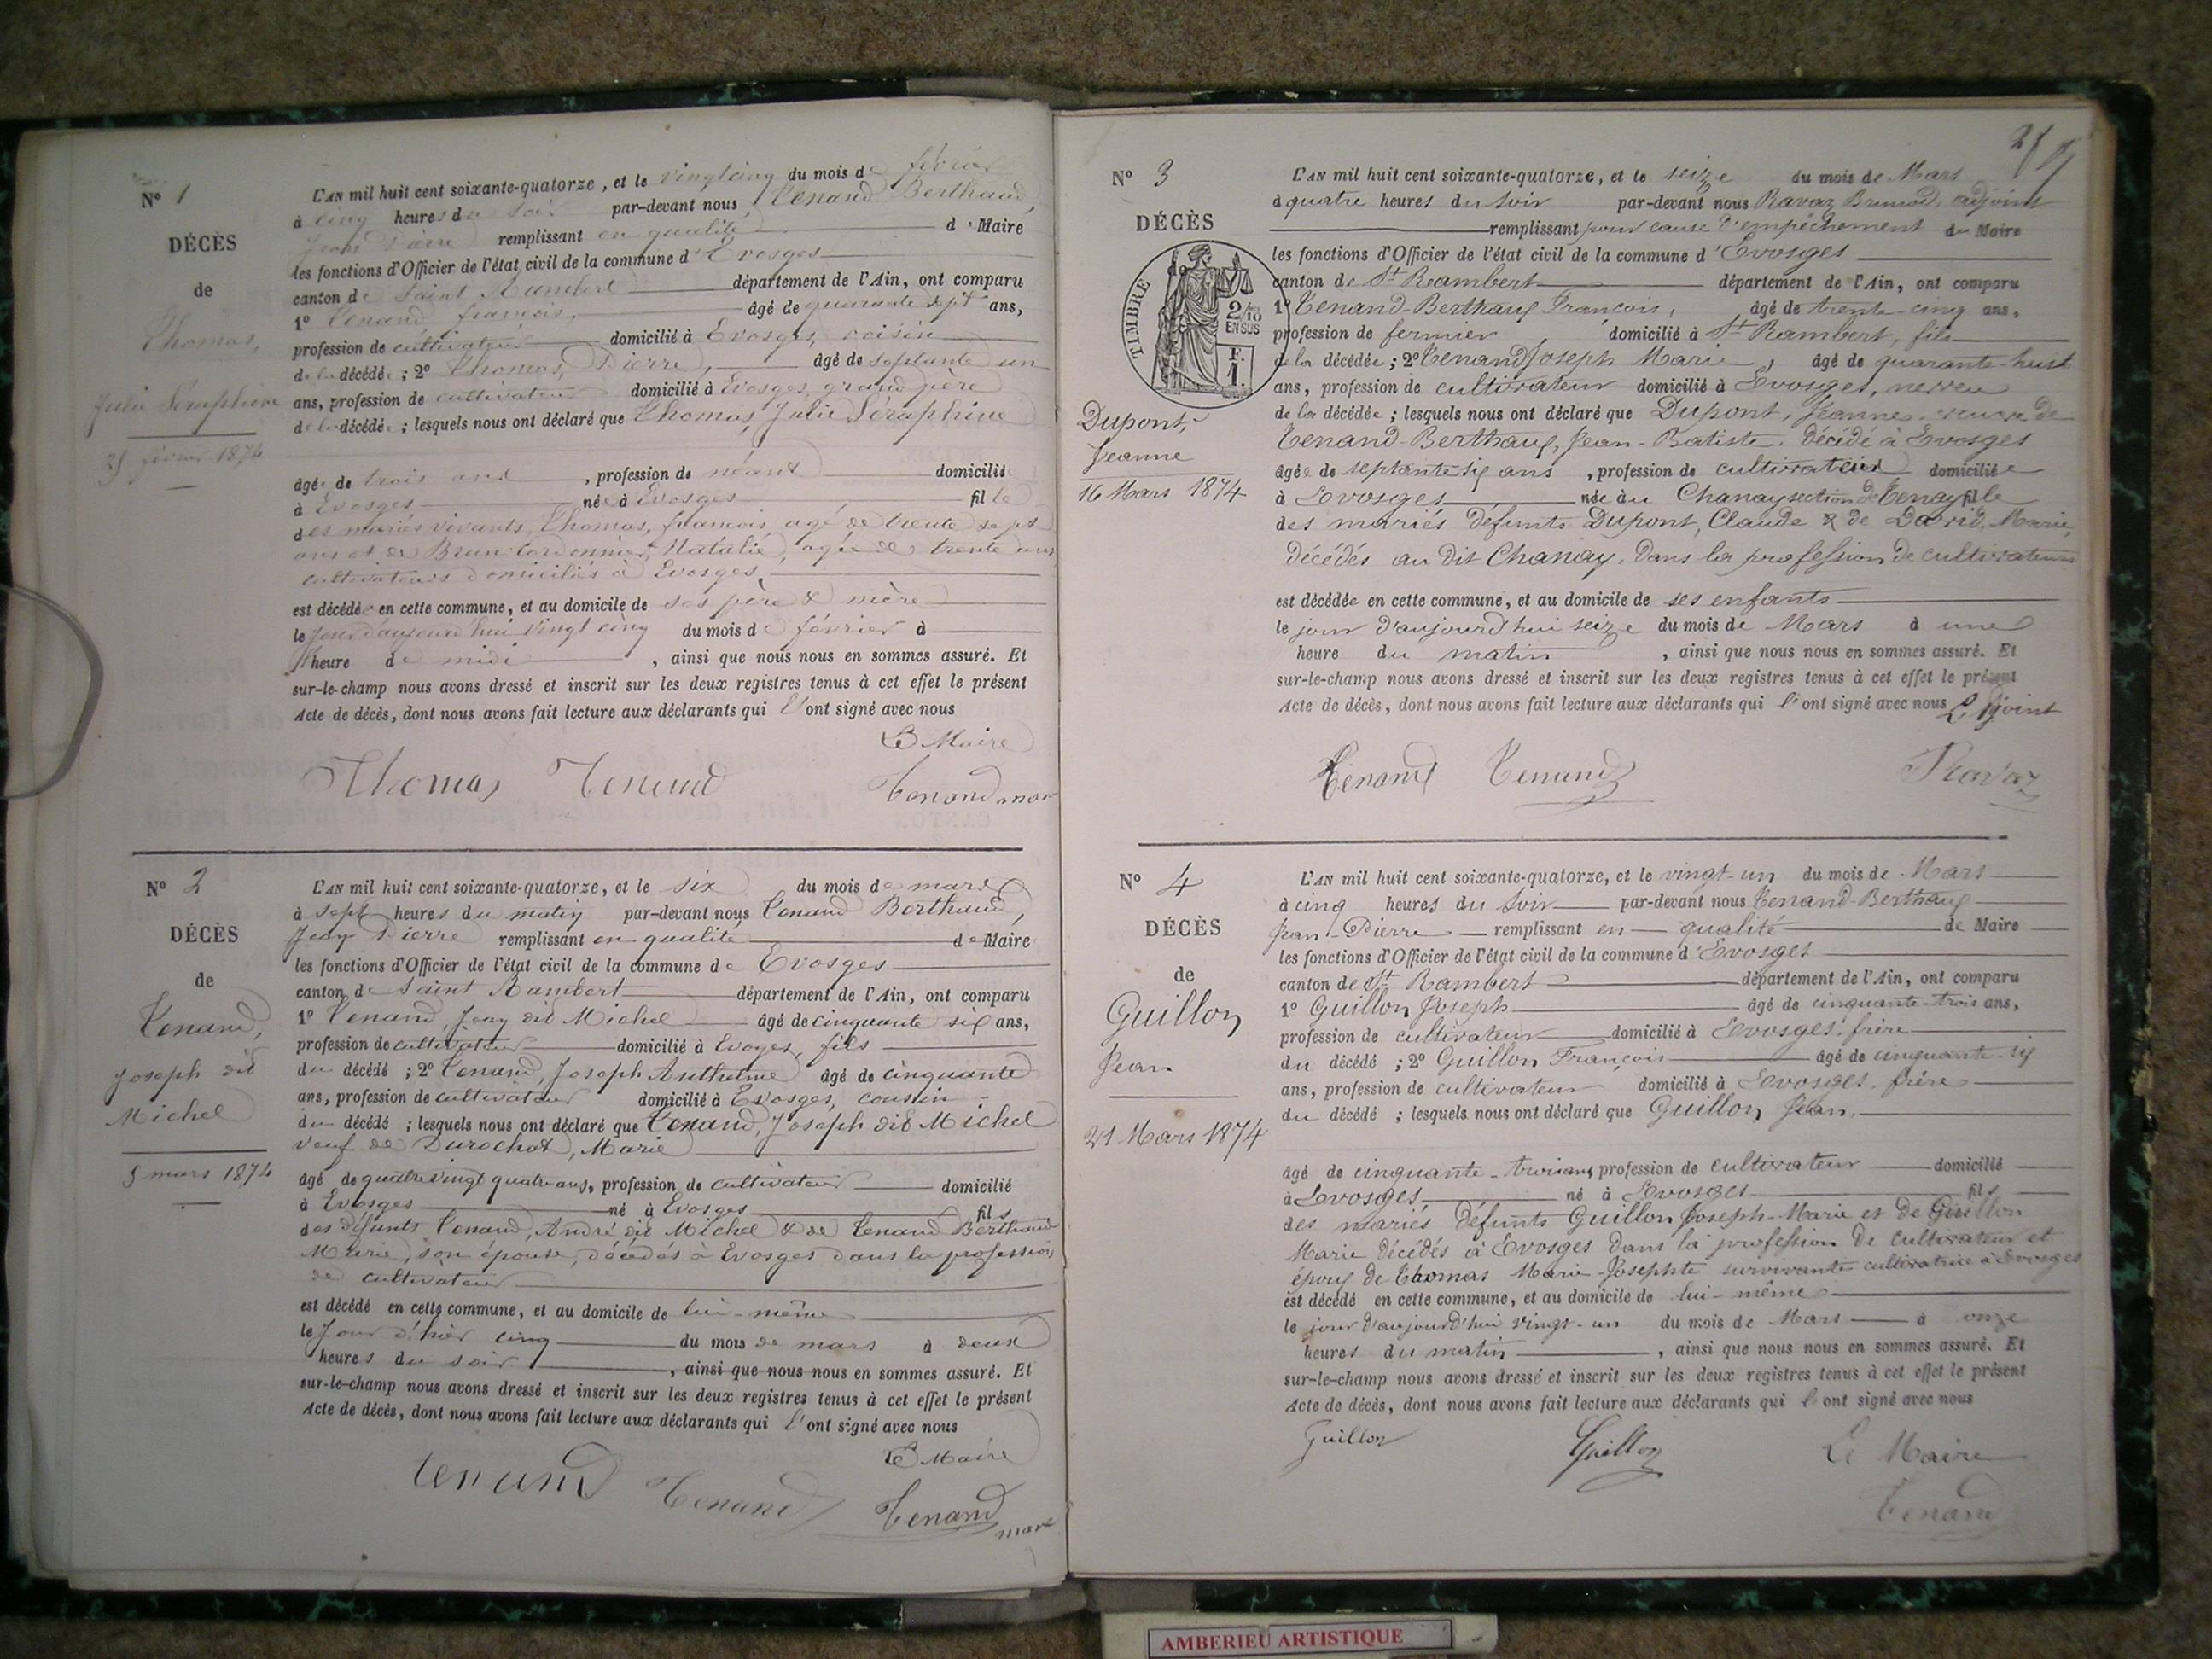 N° 1
DÉCÈS
de
Thomas,
Julie Séraphine
25 février 1874
L'AN mil huit cent soixante-quatorze, et le vingt cinq du mois de février
à cinq heures du soir par-devant nous Tenand Berthaud,
Jean Pierre remplissant en qualité de Maire
les fonctions d'Officier de l'état civil de la commune d'Evosges
canton de Saint Rambert département de l'Ain, ont comparu
1° Tenand françois, âgé de quarante sept ans,
profession de cultivateur domicilié à Evosges, voisin
de la décédée ; 2° Thomas, Pierre, âgé de septante un
ans, profession de cultivateur domicilié à Evosges, grand père
de la décédée ; lesquels nous ont déclaré que Thomas, Julie Séraphine
âgée de trois ans , profession de néant domicilié
à Evosges née à Evosges fille
des mariés vivants, Thomas, françois agé de trente sept
ans et de Brun Cordonnier, Natalie, agée de trente ans
cultivateurs domiciliés à Evosges,
est décédée en cette commune, et au domicile de ses père & mère
le Jour d'aujourd'hui vingt cinq du mois de février à
heure de midi , ainsi que nous nous en sommes assuré. Et
sur-le-champ nous avons dressé et inscrit sur les deux registres tenus à cet effet le présent
Acte de décès, dont nous avons fait lecture aux déclarants qui l'ont signé avec nous
Le Maire
Thomas Tenand Tenand
N° 2
DÉCÈS
de
Tenand,
Joseph dit
Michel
5 mars 1874
L'AN mil huit cent soixante-quatorze, et le six du mois de mars
à sept heures du matin par-devant nous Tenand Berthaud,
Jean Pierre remplissant en qualité de Maire
les fonctions d'Officier de l'état civil de la commune de Evosges
canton de Saint Rambert département de l'Ain, ont comparu
1° Tenand, Jean dit Michel âgé de cinquante six ans,
profession de cultivateur domicilié à Evoges, fils
du décédé ; 2° Tenand, Joseph Anthelme âgé de cinquante
ans, profession de cultivateur domicilié à Evosges, cousin
du décédé ; lesquels nous ont déclaré que Tenand, Joseph dit Michel
veuf de Durochat, Marie
âgé de quatre vingt quatre ans, profession de cultivateur domicilié
à Evosges né à Evosges fils
des défunts Tenand, André dit Michel & de Tenand Berthaud
Marie, son épouse, décédés à Evosges dans la profession
de cultivateur
est décédé en cette commune, et au domicile de lui-même
le Jour d'hier cinq du mois de mars à deux
heures du soir , ainsi que nous nous en sommes assuré. Et
sur-le-champ nous avons dressé et inscrit sur les deux registres tenus à cet effet le présent
Acte de décès, dont nous avons fait lecture aux déclarants qui l'ont signé avec nous
Le Maire
tenand Tenand Tenand
N° 3
DÉCÈS
TIMBRE
2/10
EN SUS
F.
1.
Dupont,
Jeanne
16 Mars 1874
L'AN mil huit cent soixante-quatorze, et le seize du mois de Mars
à quatre heures du soir par-devant nous Ravaz Brunod, adjoint
remplissant pour cause d'empêchement du Maire
les fonctions d'Officier de l'état civil de la commune d'Evosges
canton de St Rambert département de l'Ain, ont comparu
1° Tenand-Berthaud François, âgé de trente-cinq ans,
profession de fermier domicilié à St Rambert, fils
de la décédée ; 2° Tenand Joseph Marie, âgé de quarante-huit
ans, profession de cultivateur domicilié à Evosges, neveu
de la décédée ; lesquels nous ont déclaré que Dupont, Jeanne, veuve de
Tenand-Berthaud, Jean-Batiste, décédé à Evosges
âgée de septante six ans , profession de cultivateur domiciliée
à Evosges née au Chanay section de Tenay fille
des mariés défunts Dupont, Claude & de David, Marie,
décédés au dit Chanay, dans la profession de cultivateurs
est décédée en cette commune, et au domicile de ses enfants
le jour d'aujourd'hui seize du mois de Mars à une
heure du matin , ainsi que nous nous en sommes assuré. Et
sur-le-champ nous avons dressé et inscrit sur les deux registres tenus à cet effet le présent
Acte de décès, dont nous avons fait lecture aux déclarants qui l'ont signé avec nous L'adjoint
Tenand Tenand Ravaz
N° 4
DÉCÈS
de
Guillon
Jean
21 Mars 1874
L'AN mil huit cent soixante-quatorze, et le vingt-un du mois de Mars
à cinq heures du soir par-devant nous Tenand-Berthaud
Jean-Pierre remplissant en qualité de Maire
les fonctions d'Officier de l'état civil de la commune d'Evosges
canton de St Rambert département de l'Ain, ont comparu
1° Guillon Joseph âgé de cinquante-trois ans,
profession de cultivateur domicilié à Evosges, frère
du décédé ; 2° Guillon François âgé de cinquante-six
ans, profession de cultivateur domicilié à Evosges, frère
du décédé ; lesquels nous ont déclaré que Guillon Jean,
âgé de cinquante-trois ans, profession de cultivateur domicilié
à Evosges né à Evosges fils
des mariés défunts Guillon Joseph-Marie et de Guillon
Marie décédés à Evosges dans la profession de cultivateur et
époux de Thomas Marie-Josephte survivante cultivatrice à Evosges
est décédé en cette commune, et au domicile de lui-même
le jour d'aujourd'hui vingt-un du mois de Mars à onze
heures du matin , ainsi que nous nous en sommes assuré. Et
sur-le-champ nous avons dressé et inscrit sur les deux registres tenus à cet effet le présent
Acte de décès, dont nous avons fait lecture aux déclarants qui l'ont signé avec nous
Guillon Guillon Le Maire
Tenand
AMBERIEU ARTISTIQUE